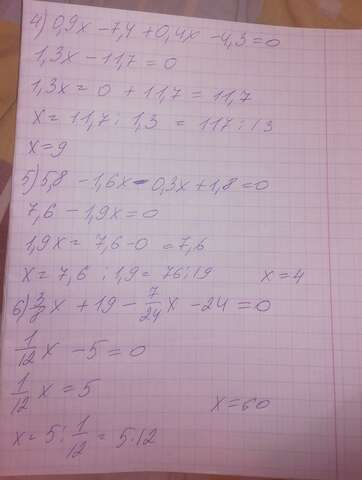 4) 0,9x - 7,4 + 0,4x - 4,3 = 0
1,3x - 11,7 = 0
1,3x = 0 + 11,7 = 11,7
x = 11,7 : 1,3 = 117 : 13
x = 9
5) 5,8 - 1,6x - 0,3x + 1,8 = 0
7,6 - 1,9x = 0
1,9x = 7,6 - 0 = 7,6
x = 7,6 : 1,9 = 76 : 19 x = 4
6) 3/8 x + 19 - 7/24 x - 24 = 0
1/12 x - 5 = 0
1/12 x = 5
x = 60
x = 5 : 1/12 = 5 · 12